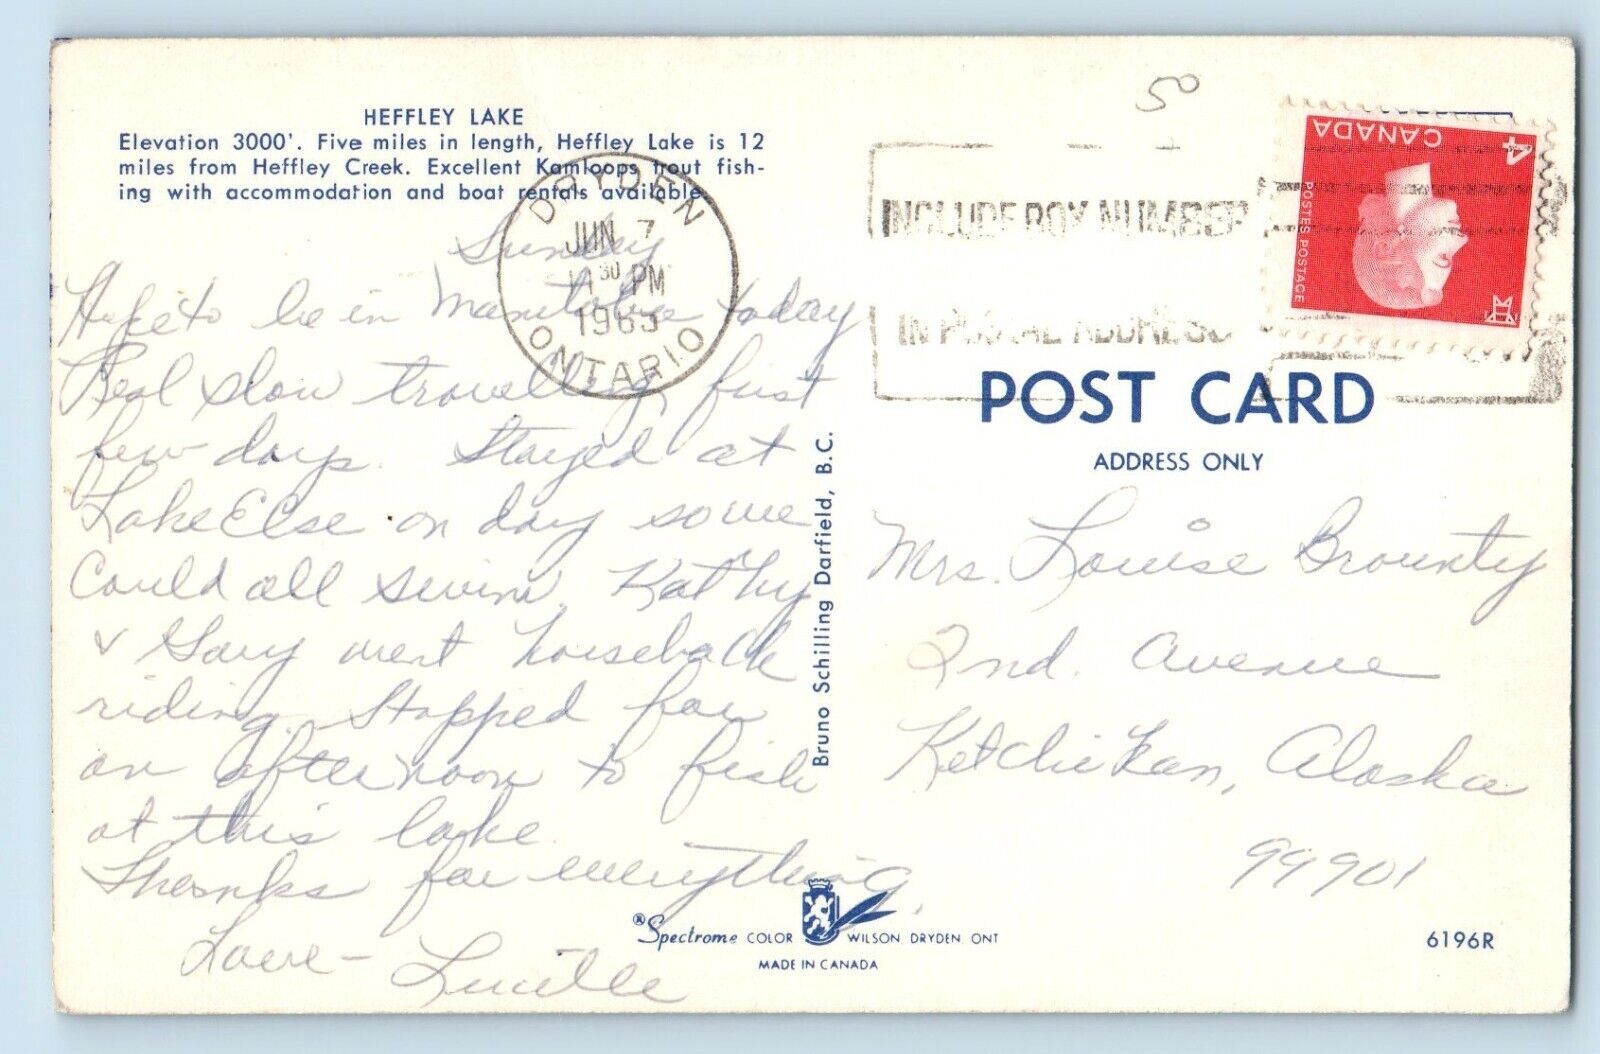 HEFFLEY LAKE
Elevation 3000'. Five miles in length, Heffley Lake is 12
miles from Heffley Creek. Excellent Kamloops trout fish-
ing with accommodation and boat rentals available.
Sunday
Hope to be in Manitoba today
Real slow travelling first
few days. Stayed at
Lake Else on day some
Could all swim. Kathy
& Gary went horseback
riding. Stopped for
an afternoon to fish
at this lake.
Thanks for everything.
Love - Lucille
DRYDEN
JUN 7
30 PM
ONTARIO
50
INCLUDE BOX NUMBER
IN POSTAL ADDRESS
CANADA
4
POSTES POSTAGE
POST CARD
ADDRESS ONLY
Mrs. Louise Brounty
2nd. Avenue
Ketchikan, Alaska
99901
Bruno Schilling Darfield, B.C.
®Spectrome COLOR WILSON DRYDEN ONT
MADE IN CANADA
6196R